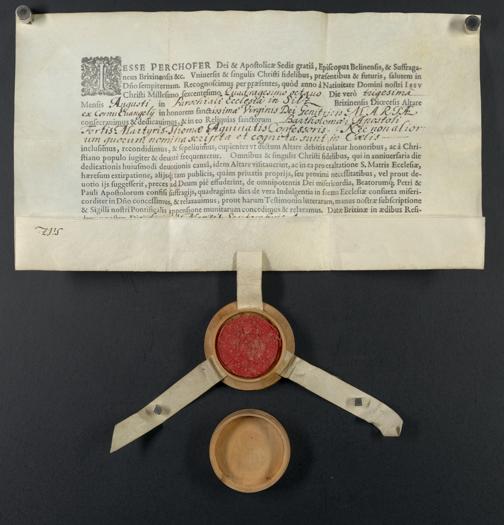 JESSE PERCHOFER Dei & Apostolicæ Sedis gratiâ, Episcopus Belinensis, & Suffraga-
neus Brixinensis &c. Vniversis & singulis Christi fidelibus, præsentibus & futuris, salutem in
Dño sempiternam. Recognoscimus per præsentes, quòd anno à Nativitate Domini nostri Iesu
Christi Millesimo, sexcentesimo, Quadragesimo octavo Die verò trigesima
Mensis Augusti, in Parochiali Ecclesia in Silz Brixinensis Diœcesis Altare
ex Cornu Evangely in honorem sanctissimæ Virginis Dei genitricis MARIÆ
consecravimus & dedicavimus, & in eo Reliquias sanctorum Bartholomæi Apostoli
Fortis Martyris Thomæ Aquinatis Confessoris. Nec non alior
um quorum nomina scripta et cognita sunt in Cælis
inclusimus, recondidimus, & sepelivimus, cupientes vt dictum Altare debitis colatur honoribus, ac à Chri-
stiano populo iugiter & deuotè frequentetur. Omnibus & singulis Christi fidelibus, qui in anniuersario die
dedicationis huiusmodi deuotionis causâ, idem Altare visitauerint, ac in ea pro exaltatione S. Matris Ecclesiæ,
hæresum extirpatione, alijsque tam publicis, quàm privatis proprijs, seu proximi necessitatibus, vel prout de-
uotio ijs suggesserit, preces ad Deum piè effuderint, de omnipotentis Dei misericordia, Beatorumque Petri &
Pauli Apostolorum confisi suffragijs, quadraginta dies de vera Indulgentia in formâ Ecclesiæ consueta miseri-
corditer in Dño concessimus, & relaxauimus, prout harum Testimonio litterarum, manus nostræ subscriptione
& Sigilli nostri Pontificalis appensione munitarum concedimus & relaxamus. Datæ Brixinæ in ædibus Resi-